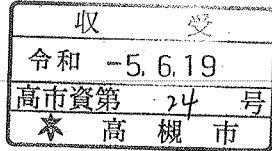 収 受
令和 -5.6.19
高市資第 24 号
高槻市